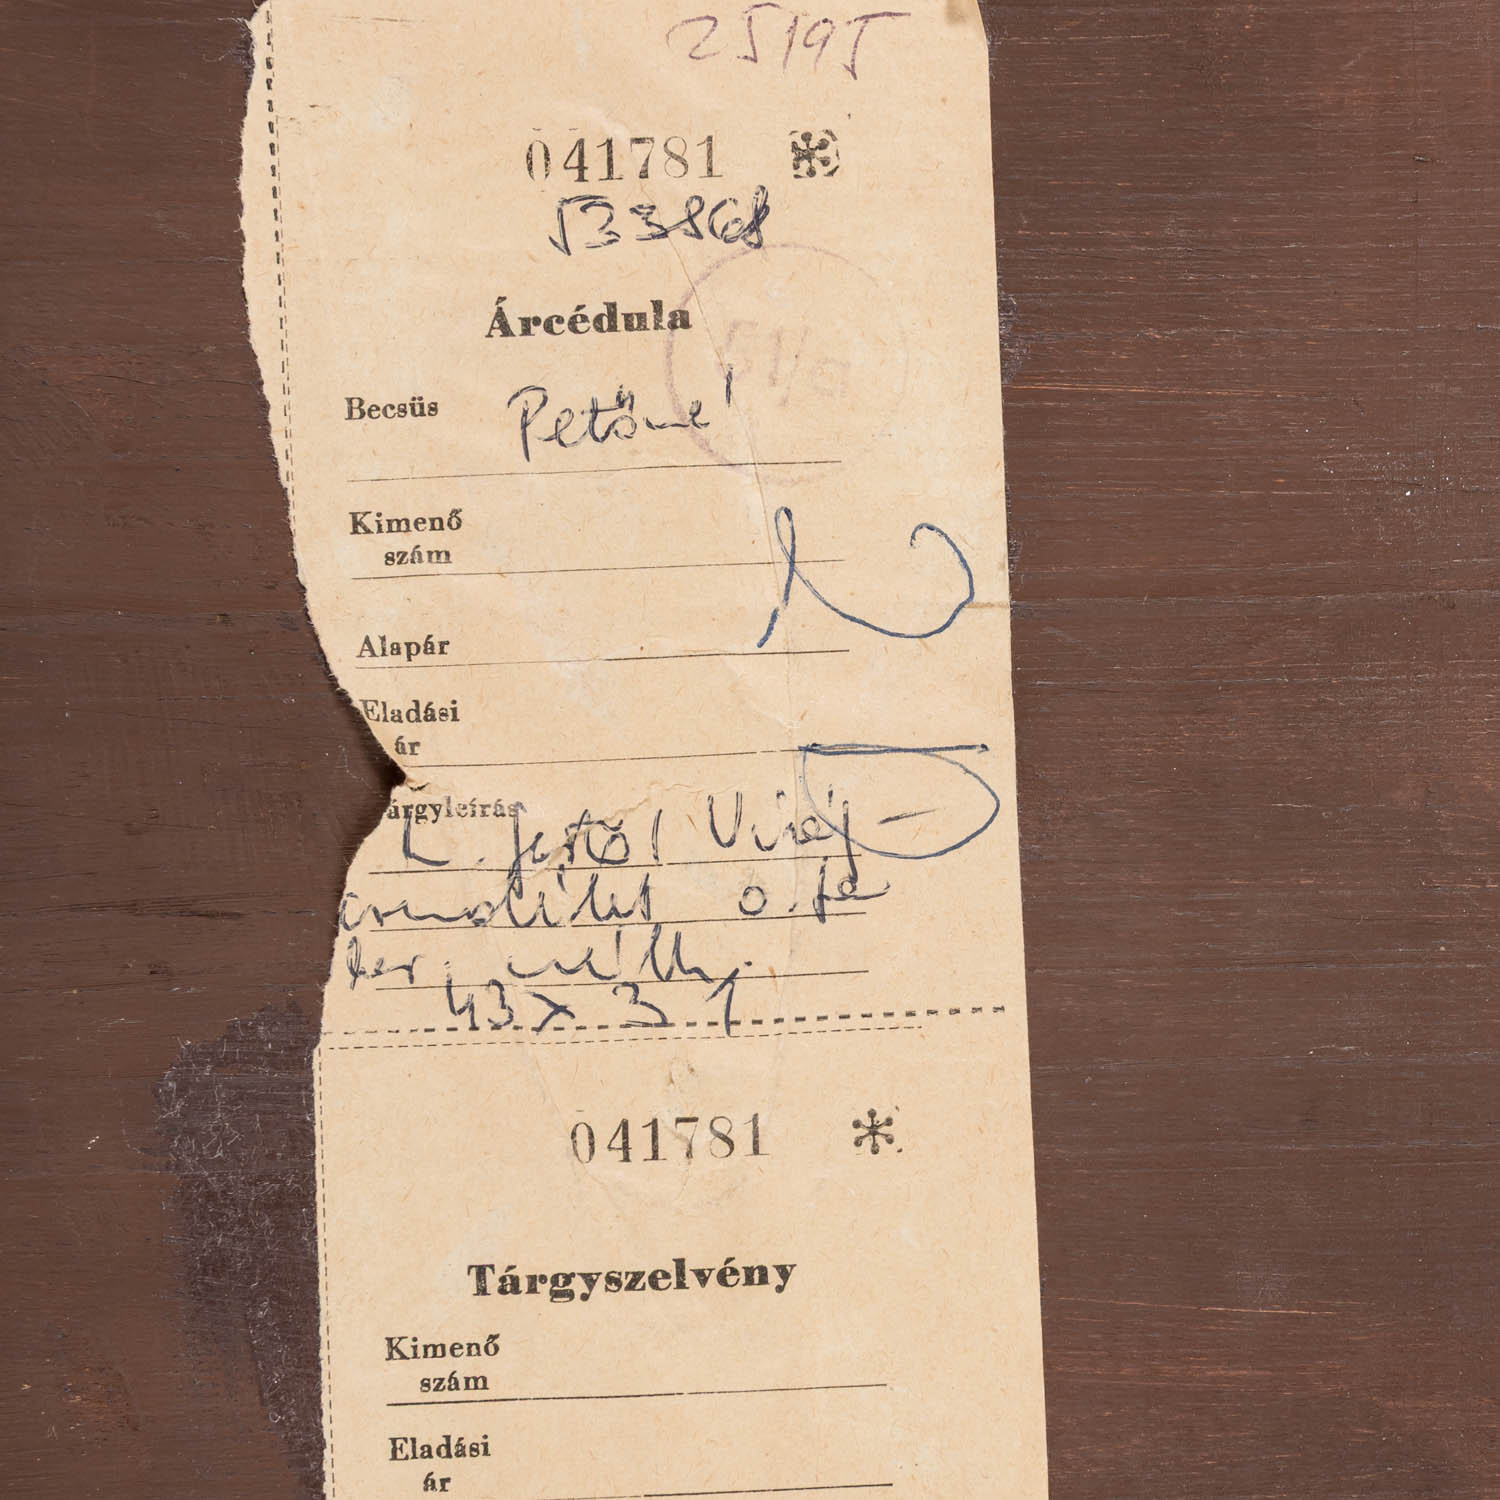 25195
041781 *
533868
Árcédula
51/a
Becsüs Petőné
Kimenő
szám
Alapár
Eladási
ár
árgyleírás
L. festő Virág
csendélet o. fa
ker. nélk.
43x31
041781 *
Tárgyszelvény
Kimenő
szám
Eladási
ár